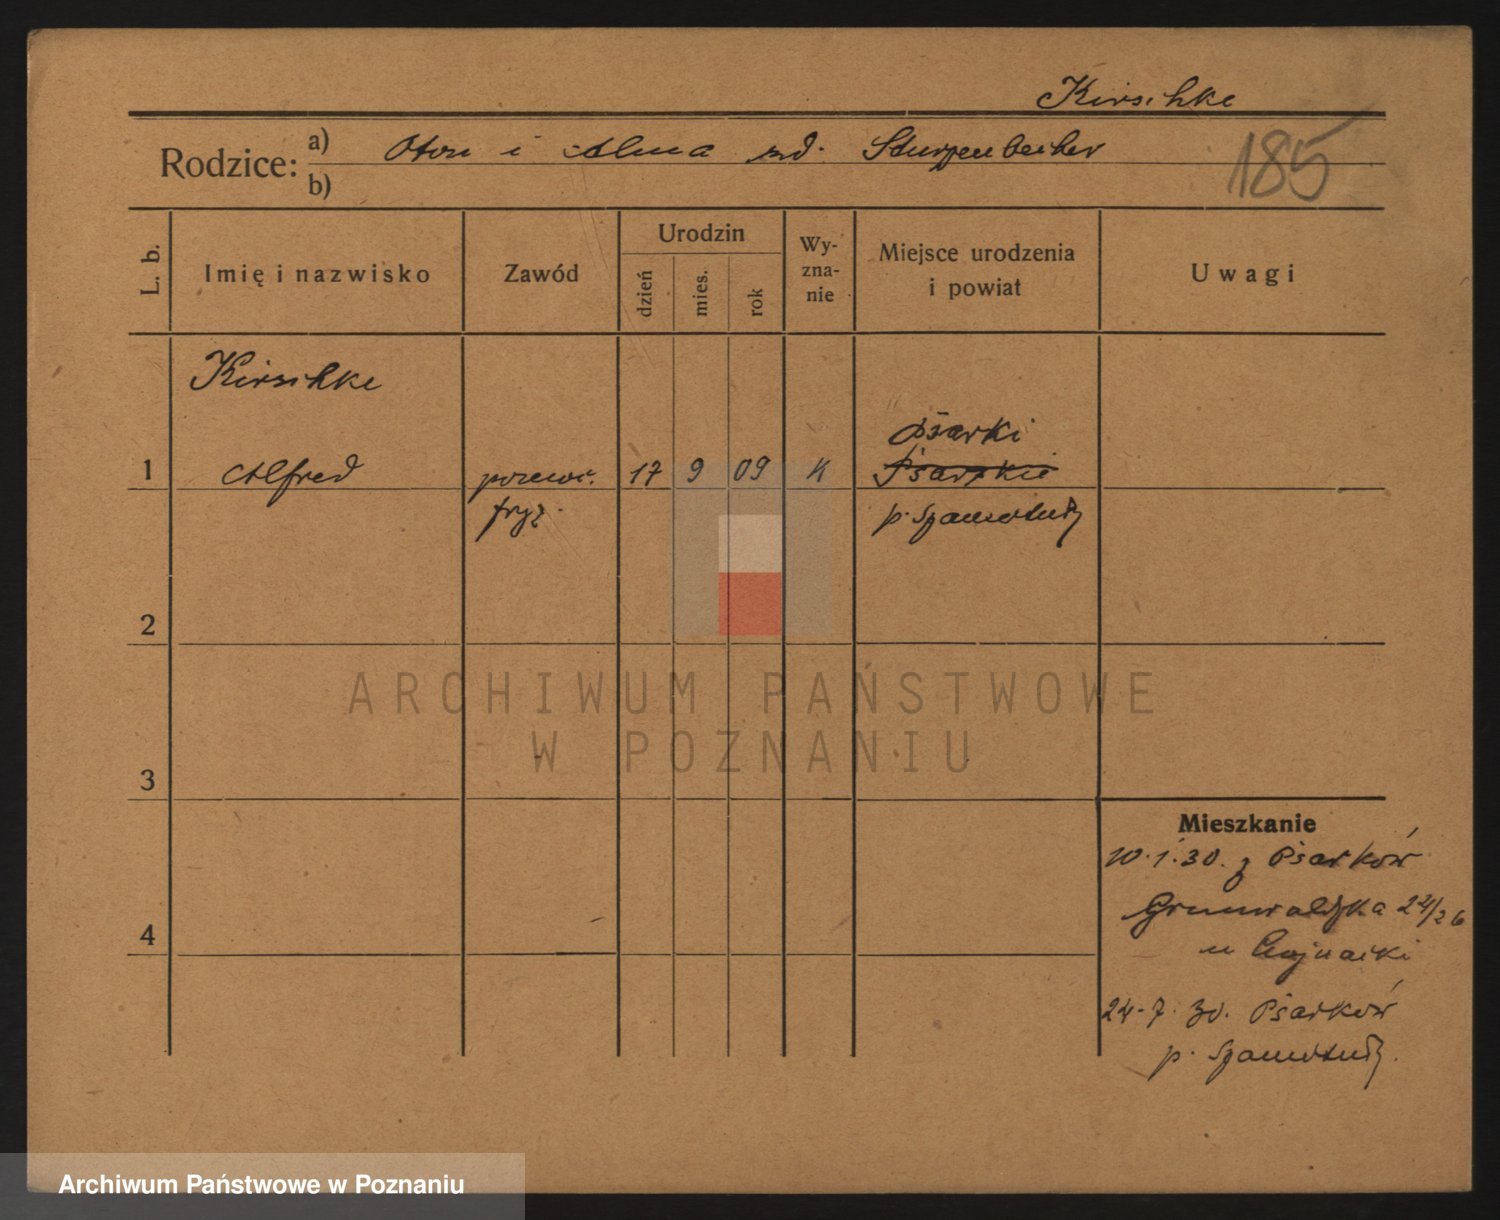 Kirschke
Rodzice: a) Oton i Alma zd. Sturzenbecher
185
b)
L. b.
Imię i nazwisko
Zawód
Urodzin
dzień
mies.
rok
Wy-
zna-
nie
Miejsce urodzenia
i powiat
Uwagi
Kirschke
Psarki
1 Alfred 17 9 09 K Psarskie
fryz. p. Szamotuły
2
ARCHIWUM PAŃSTWOWE
W POZNANIU
3
Mieszkanie
10.1.30. z Psarków
Grunwaldzka 24/26
u Chojnacki
24.7.30. Psarków
p. Szamotuły.
4
Archiwum Państwowe w Poznaniu